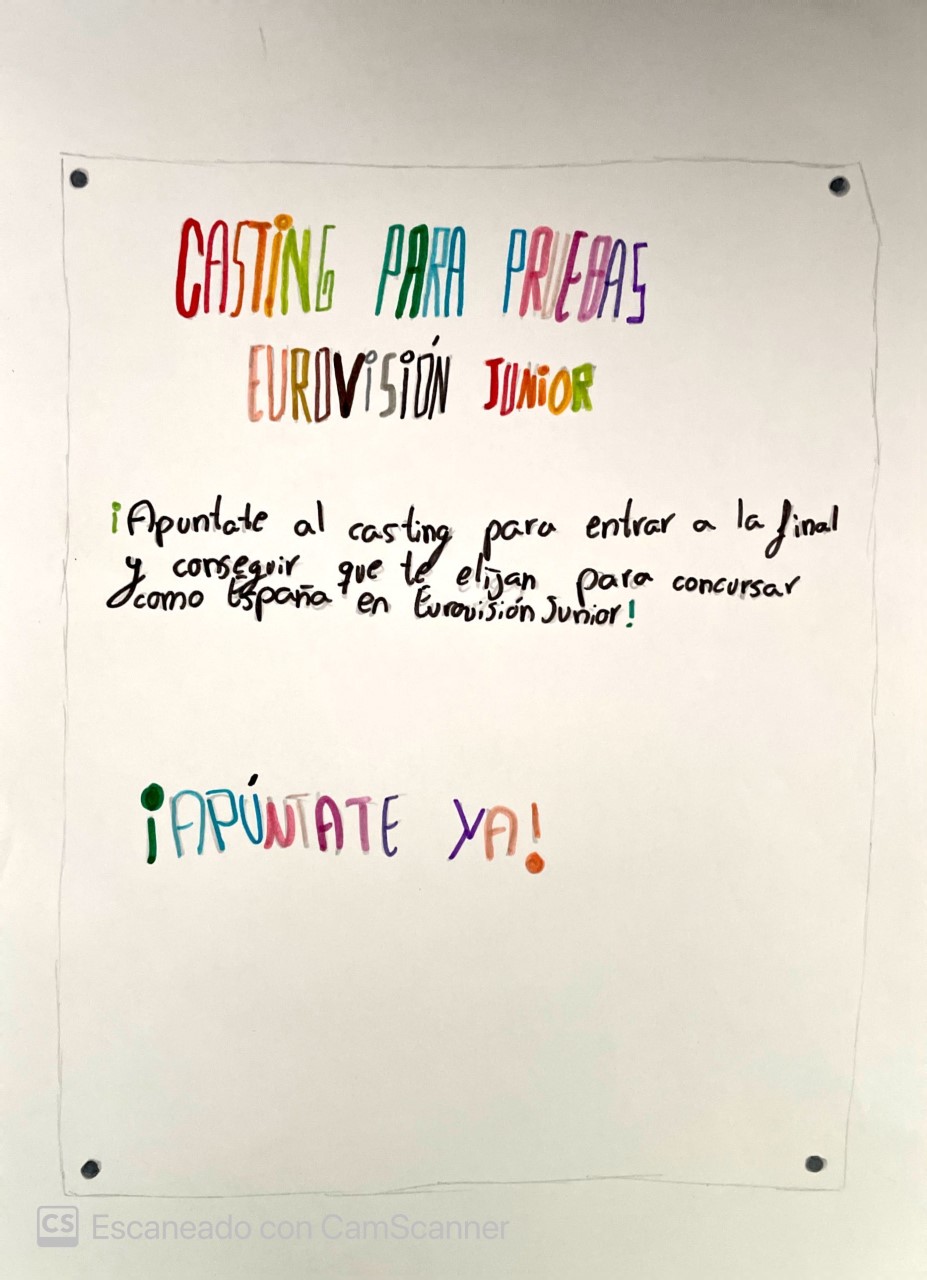 CASTING PARA PRUEBAS
EUROVISIÓN JUNIOR
¡Apuntate al casting para entrar a la final
y conseguir que te elijan para concursar
como España en Eurovisión Junior!
¡APÚNTATE YA!
CS Escaneado con CamScanner